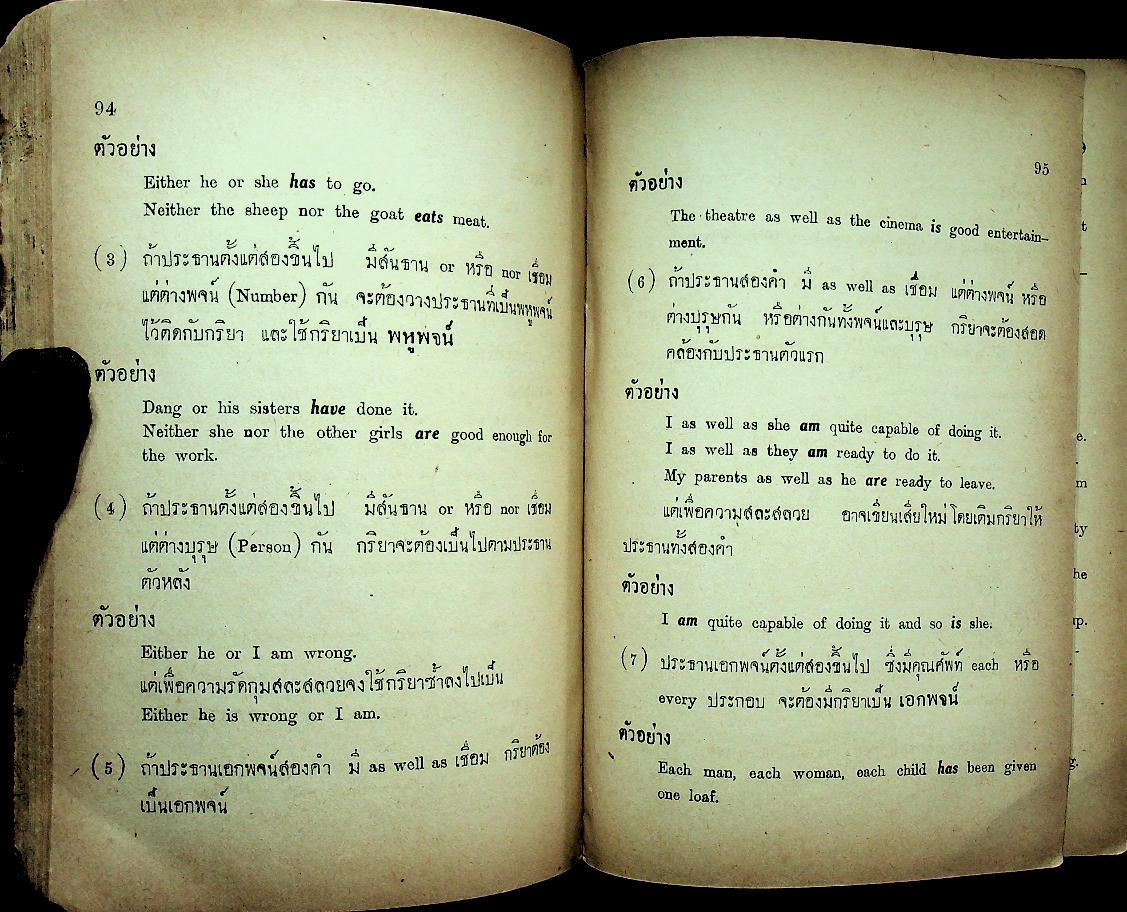 94
ตัวอย่าง
Either he or she has to go.
Neither the sheep nor the goat eats meat.
(3) ถ้าประธานตั้งแต่สองขึ้นไป มีสันธาน or หรือ nor เชื่อม
แต่ต่างพจน์ (Number) กัน จะต้องวางประธานที่เป็นพหูพจน์
ไว้ติดกับกริยา และใช้กริยาเป็น พหูพจน์
ตัวอย่าง
Dang or his sisters have done it.
Neither she nor the other girls are good enough for
the work.
(4) ถ้าประธานตั้งแต่สองขึ้นไป มีสันธาน or หรือ nor เชื่อม
แต่ต่างบุรุษ (Person) กัน กริยาจะต้องเป็นไปตามประธาน
ตัวหลัง
ตัวอย่าง
Either he or I am wrong.
แต่เพื่อความรัดกุมสละสลวยจงใช้กริยาซ้ำลงไปเป็น
Either he is wrong or I am.
(5) ถ้าประธานเอกพจน์สองคำ มี as well as เชื่อม กริยาต้อง
เป็นเอกพจน์
95
ตัวอย่าง
The theatre as well as the cinema is good entertain-
ment.
(6) ถ้าประธานสองคำ มี as well as เชื่อม แต่ต่างพจน์ หรือ
ต่างบุรุษกัน หรือต่างกันทั้งพจน์และบุรุษ กริยาจะต้องสอด
คล้องกับประธานตัวแรก
ตัวอย่าง
I as well as she am quite capable of doing it.
I as well as they am ready to do it.
My parents as well as he are ready to leave.
แต่เพื่อความสละสลวย อาจเขียนเสียใหม่ โดยเติมกริยาให้
ประธานทั้งสองคำ
ตัวอย่าง
I am quite capable of doing it and so is she.
(7) ประธานเอกพจน์ตั้งแต่สองขึ้นไป ซึ่งมีคุณศัพท์ each หรือ
every ประกอบ จะต้องมีกริยาเป็น เอกพจน์
ตัวอย่าง
Each man, each woman, each child has been given
one loaf.